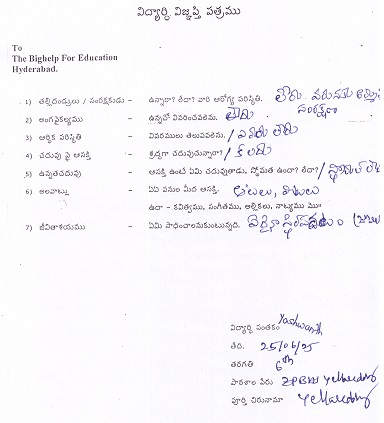 విద్యార్థి విజ్ఞప్తి పత్రము
To
The Bighelp For Education
Hyderabad.
1) తల్లిదండ్రులు / సంరక్షకుడు - ఉన్నారా? లేదా? వారి ఆరోగ్య పరిస్థితి. లేరు.
సంరక్షణ
2) అంగవైకల్యము - ఉన్నచో వివరించవలెను. లేదు
3) ఆర్థిక పరిస్థితి - వివరములు తెలుపవలెను. / ఎవరు లేరు
4) చదువు పై ఆసక్తి - శ్రద్ధగా చదువుచున్నారా? / కలదు
5) ఉన్నతచదువు - ఆసక్తి ఉంటే ఏమి చదువుతాడు. స్తోమత ఉందా? లేదా? /
6) అలవాట్లు - ఏఏ పనుల మీద ఆసక్తి. ఆటలు, పాటలు
ఉదా - కవిత్వము, సంగీతము, అల్లికలు, నాట్యము మొ॥
7) జీవితాశయము - ఏమి సాధించాలనుకుంటున్నది.
విద్యార్థి సంతకం Yashwanth
తేది. 25/06/25
తరగతి 6th
పాఠశాల పేరు ZPBHS Yellareddy
పూర్తి చిరునామా Yellareddy